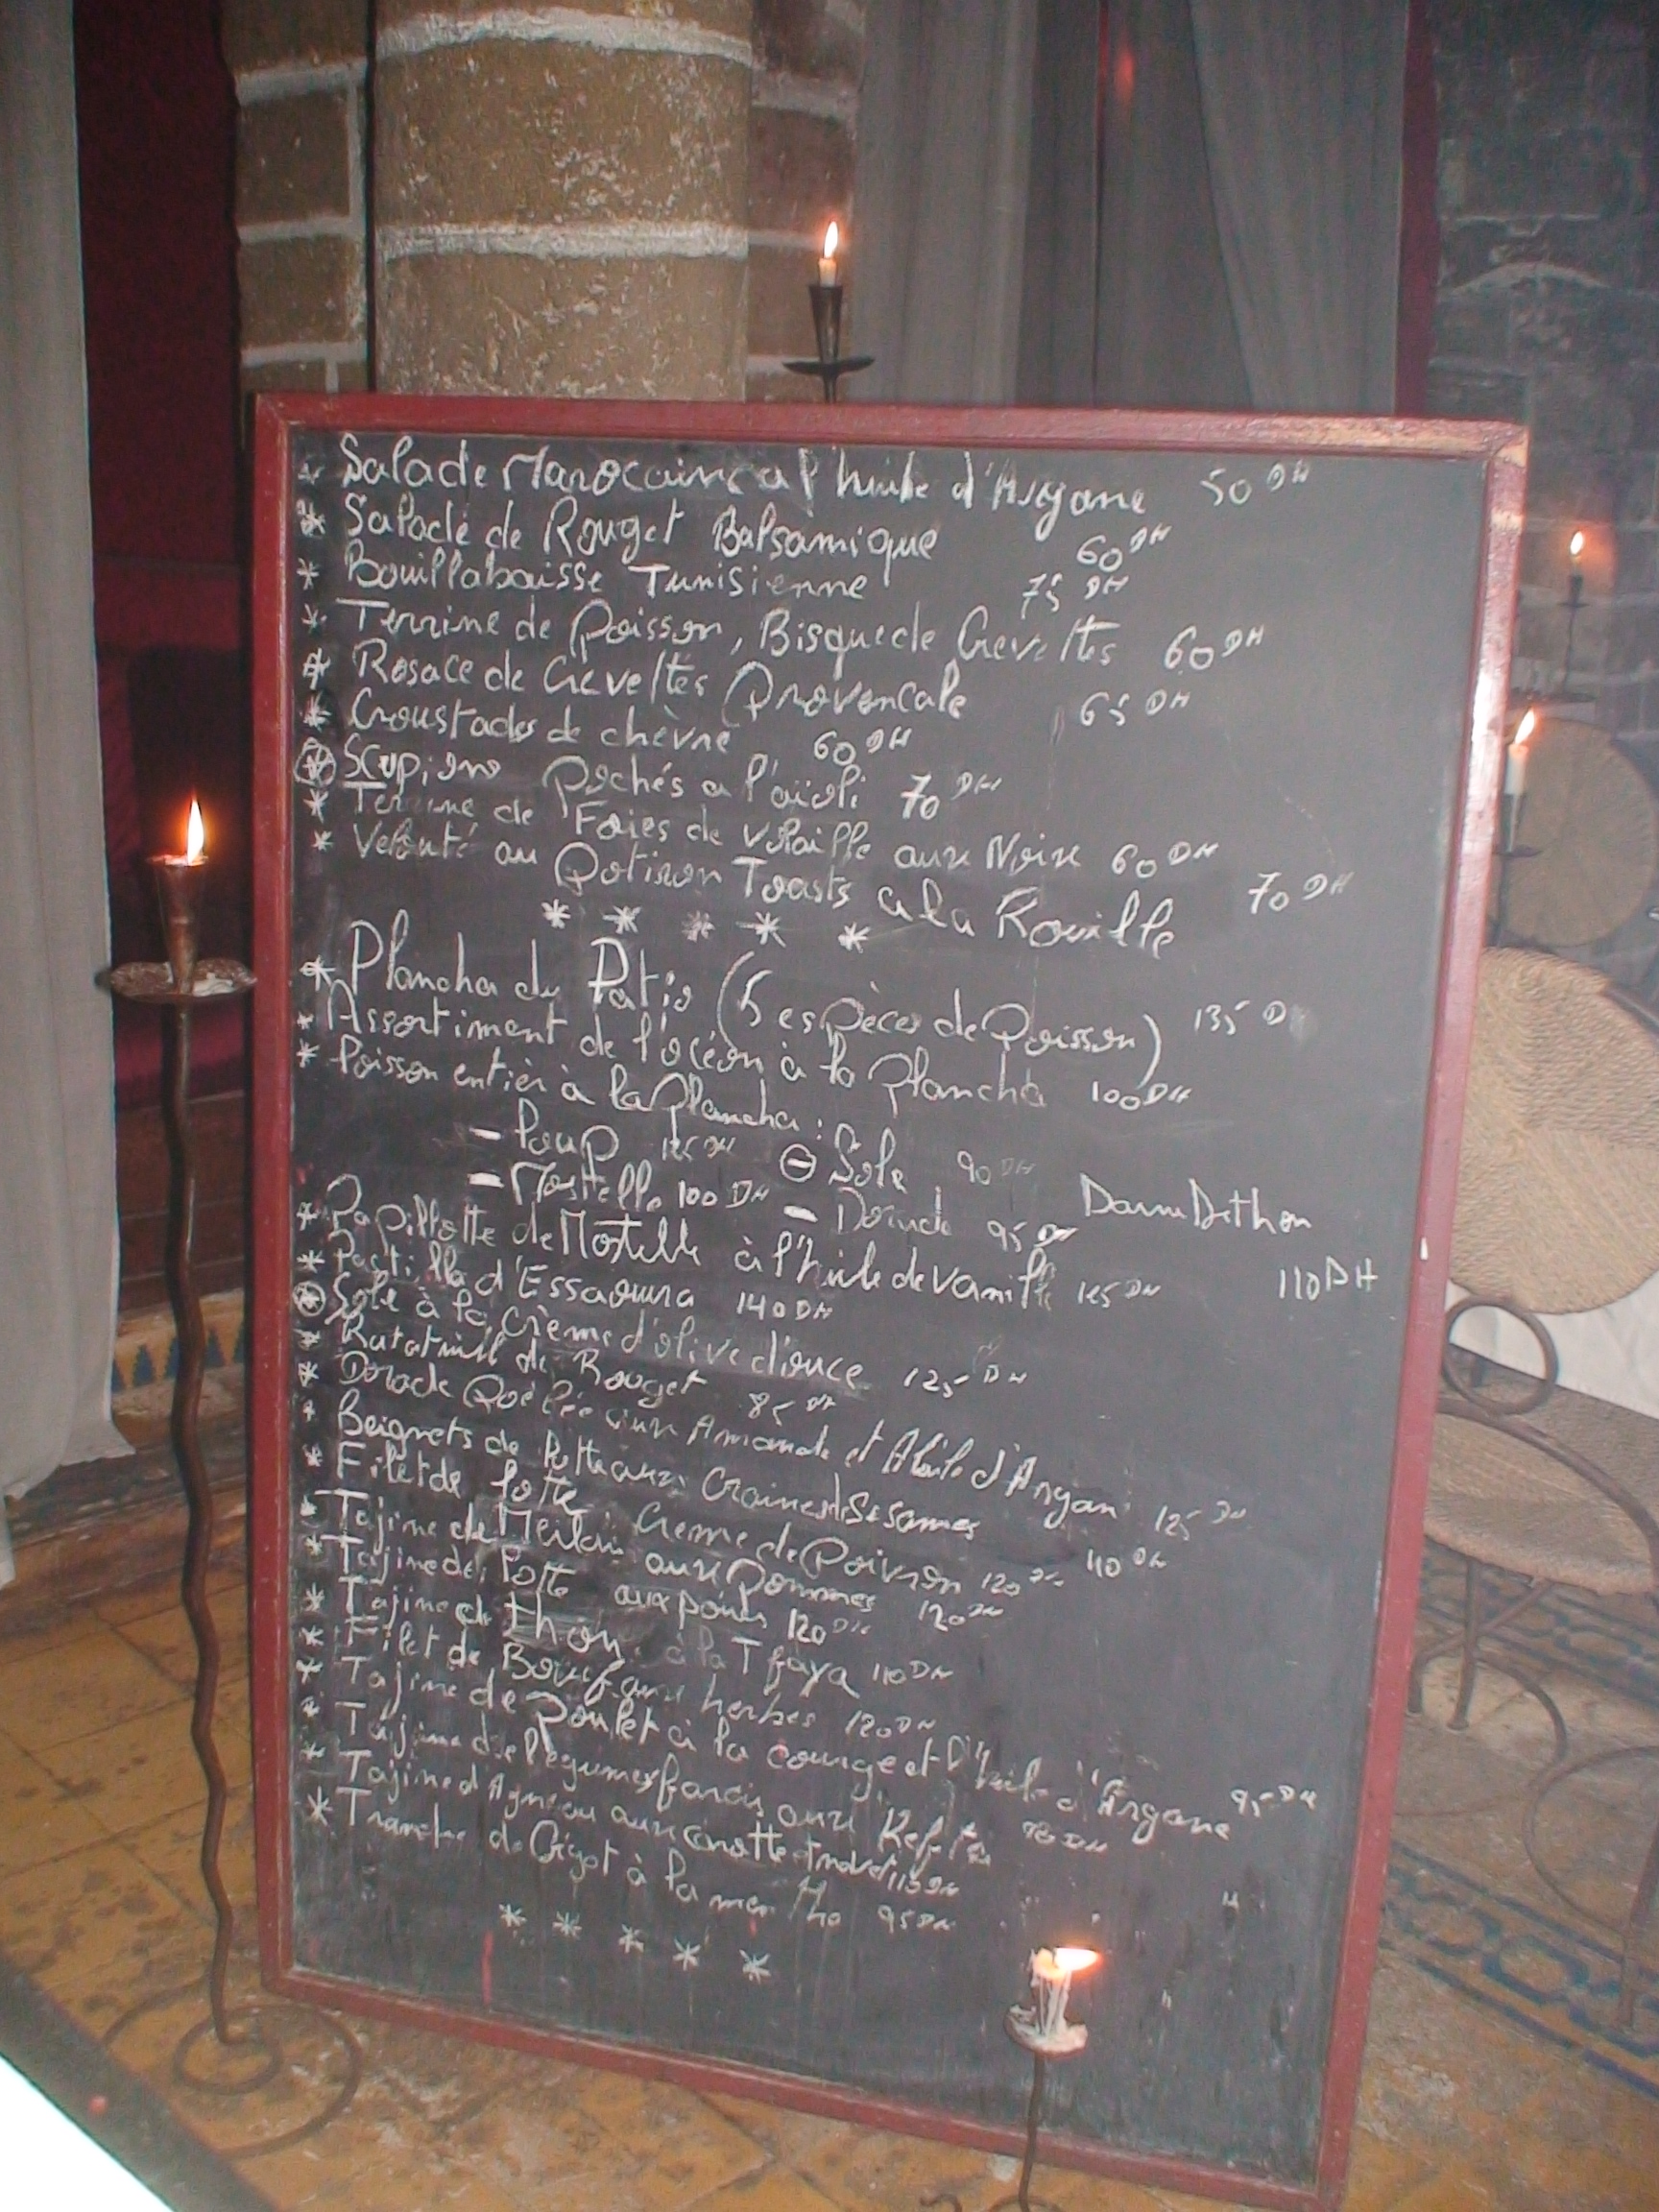 * Salade Marocaine a l'huile d'Argane 50 DH
* Salade de Rouget Balsamique 60 DH
* Bouillabaisse Tunisienne 75 DH
* Terrine de Poisson, Bisque de Crevettes 60 DH
* Rosace de Crevettes Provencale 65 DH
* Croustades de chèvre 60 DH
* Scupions Pochés a l'aïoli 70 DH
* Terrine de Foies de Volaille aux Noix 60 DH
* Velouté au Potiron Toasts a la Rouille 70 DH
* * * * *
* Plancha du Patio (5 espèces de Poisson) 135 D
* Assortiment de l'océan à la Plancha 100 DH
* Poisson entier à la Plancha :
- Loup 125 DH - Sole 90 DH
- Mostelle 100 DH - Dorade 95 DH
Darne De thon
110 DH
* Papillotte de Mostelle à l'huile de vanille 125 DH
* Pastilla d'Essaouira 140 DH
* Sole à la Crème d'olive douce 125 DH
* Ratatouille de Rouget 85 DH
* Dorade Poêlée aux Amande et A l'huile d'Argan 125 DH
* Beignets de Lotte aux Graines de Sesames 110 DH
* Filet de Lotte Creme de Poivron 120 DH
* Tajine de Merlan aux Pommes 120 DH
* Tajine de Lotte aux poires 120 DH
* Tajine de thon à la Tfaya 110 DH
* Filet de Boeuf aux herbes 120 DH
* Tajine de Poulet à la courge et D'huile d'Argane 95 DH
* Tajine de legumes farcis aux Kefta DH
* Tajine d'Agneau aux Carotte et navet 115 DH
* Tranche de Gigot à la menthe 95 DH
* * * * *